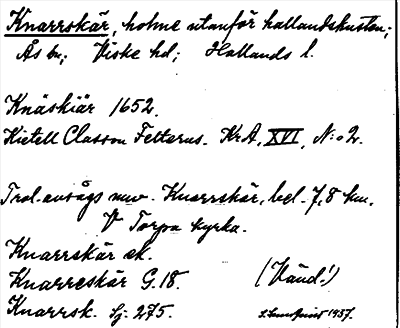 Knarrskär, holme utanför hallandskusten;
Ås sn; Viske hd; Hallands l.
Knäskiär 1652.
Kietell Classon Felterus. KrA, XVI, N:o 2.
Trol. avsågs nuv. Knarrskär, bel. 7,8 km.
V Torpa kyrka.
Knarrskär ek.
Knarreskär G.18. (Känd!)
Knarrsk. Sj. 275. 1937.